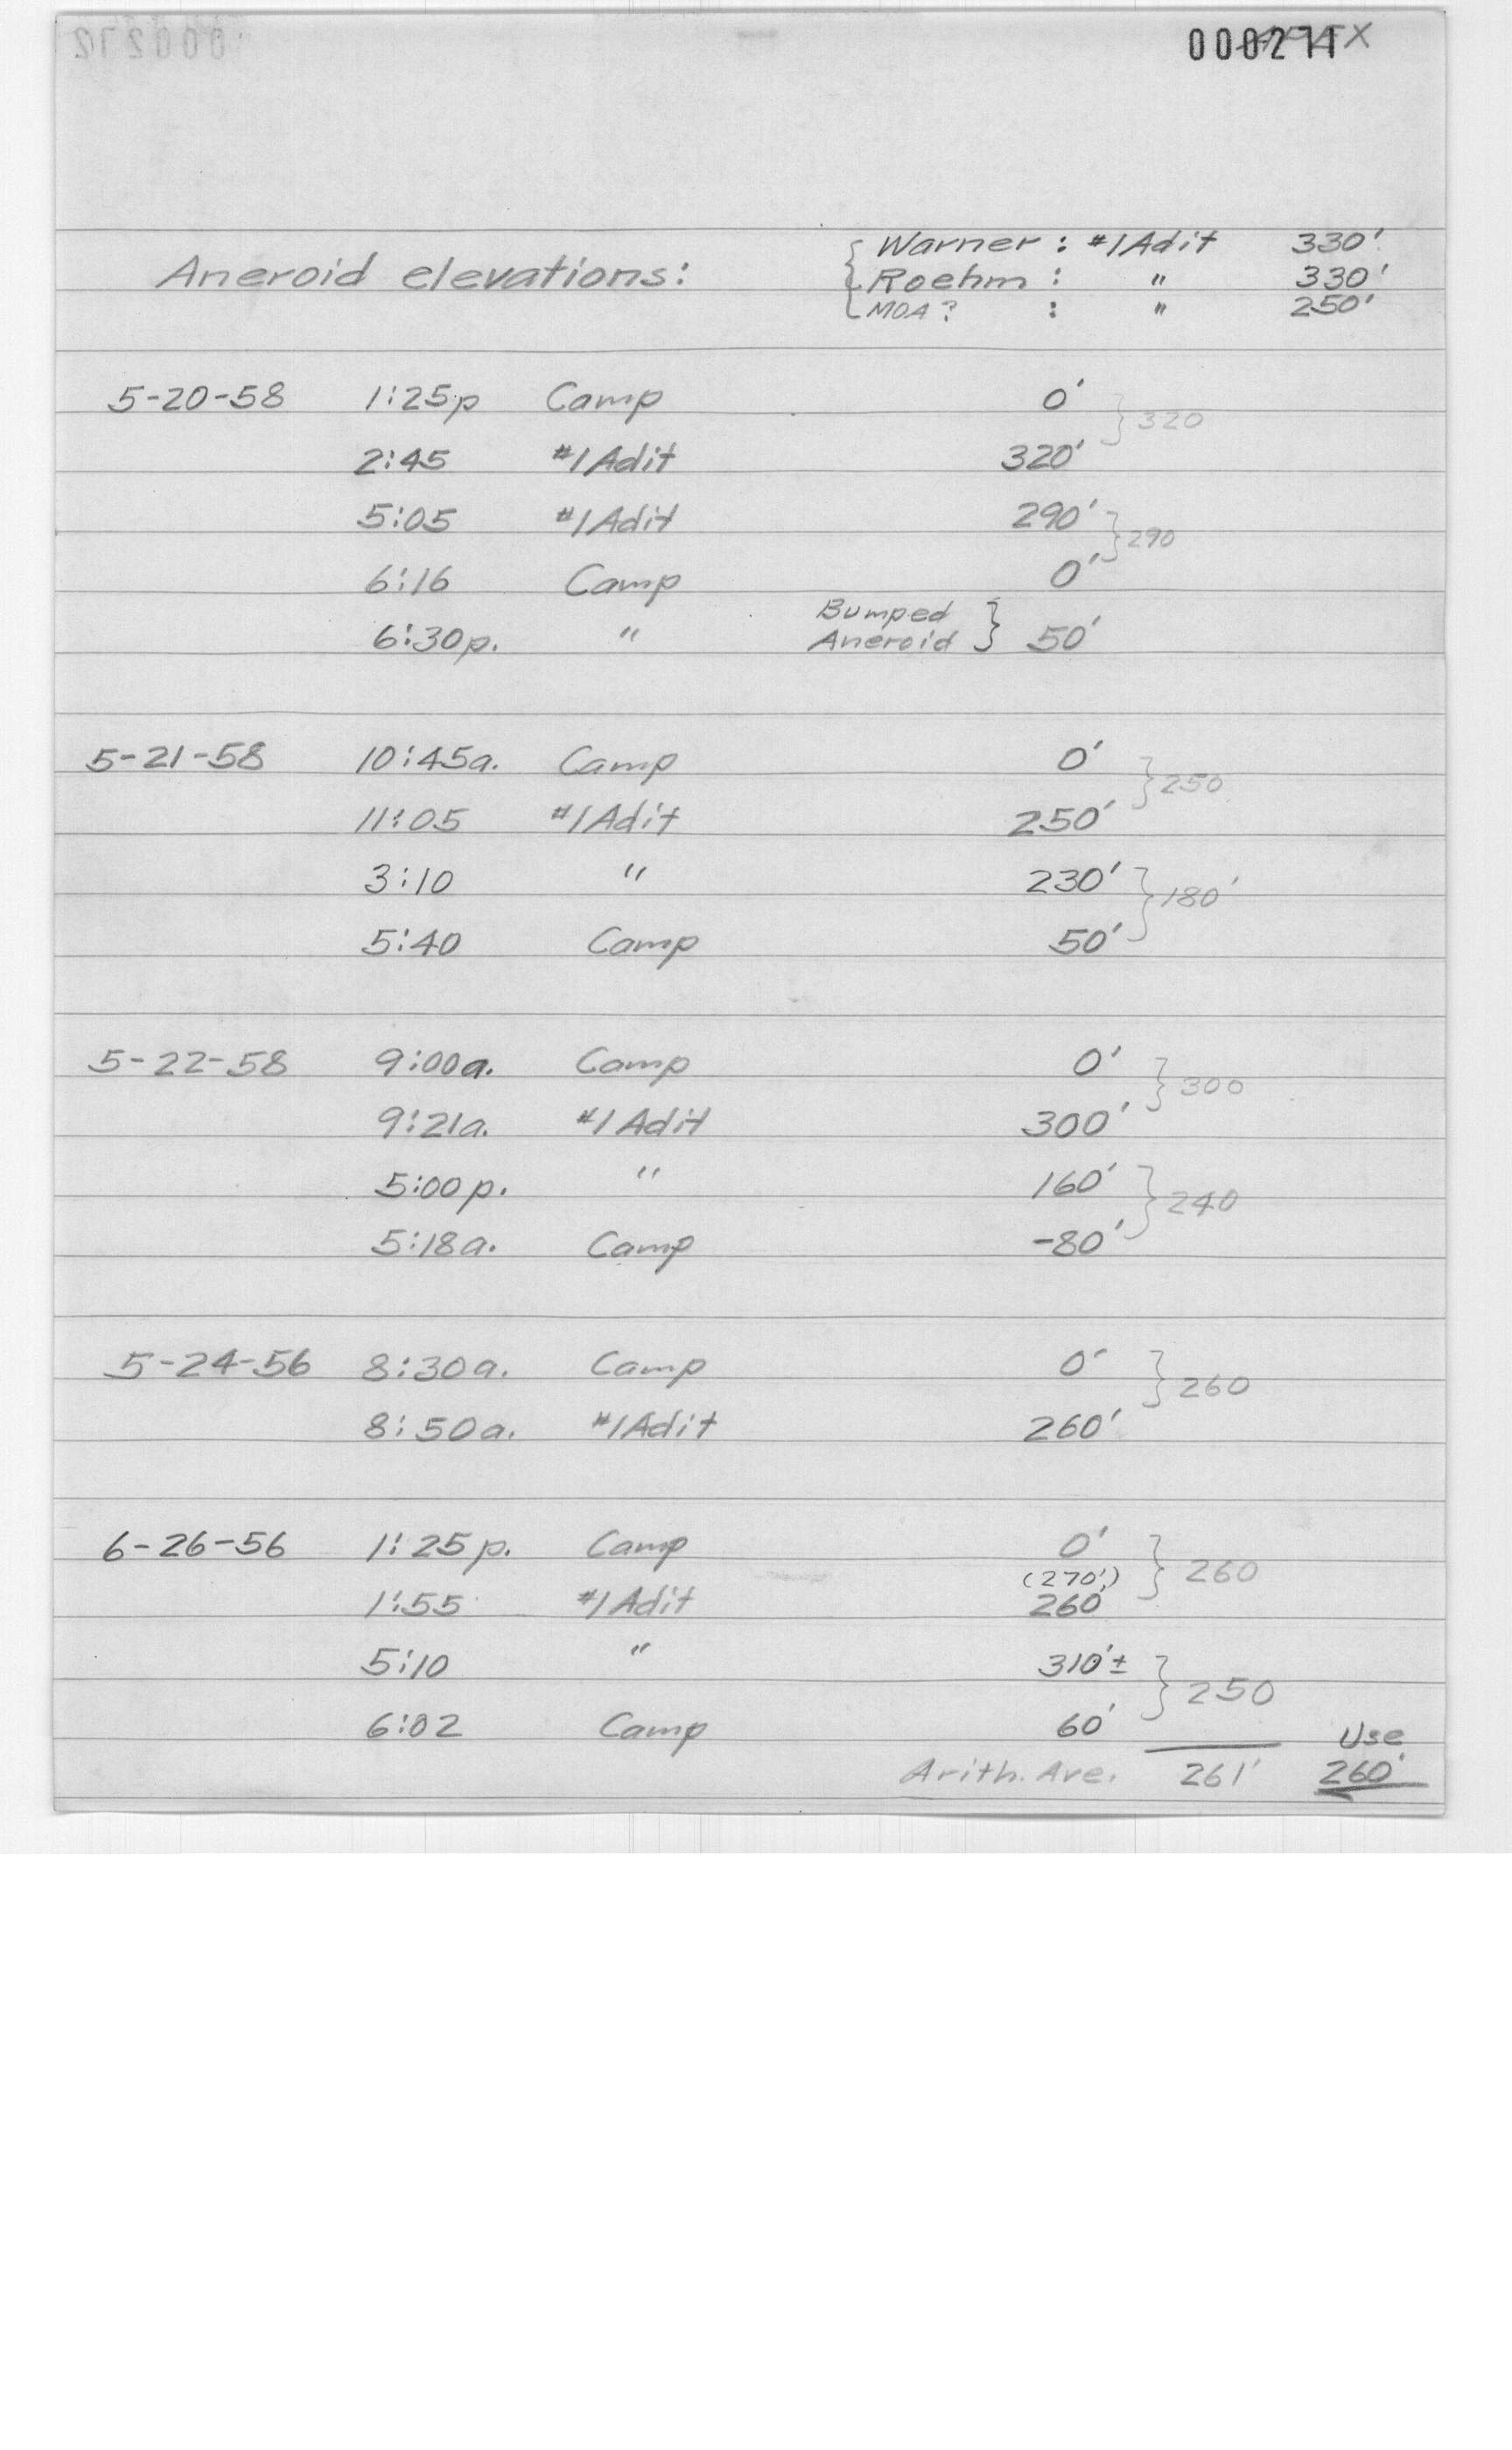 000271
Warner : #1 Adit 330'
Aneroid elevations: Roehm : " 330'
MOA? : " 250'
5-20-58 1:25p Camp 0'
320
2:45 #1 Adit 320'
5:05 #1 Adit 290'
290
6:16 Camp 0'
Bumped
6:30p. " Aneroid } 50'
5-21-58 10:45a. Camp 0'
250
11:05 #1 Adit 250'
3:10 " 230'
180'
5:40 Camp 50'
5-22-58 9:00a. Camp 0'
300
9:21a. #1 Adit 300'
5:00p. " 160'
240
5:18a. Camp -80'
5-24-56 8:30a. Camp 0'
260
8:50a. #1 Adit 260'
6-26-56 1:25p. Camp 0'
(270') 260
1:55 #1 Adit 260'
5:10 " 310'±
250
6:02 Camp 60'
Use
Arith. Ave. 261' 260'